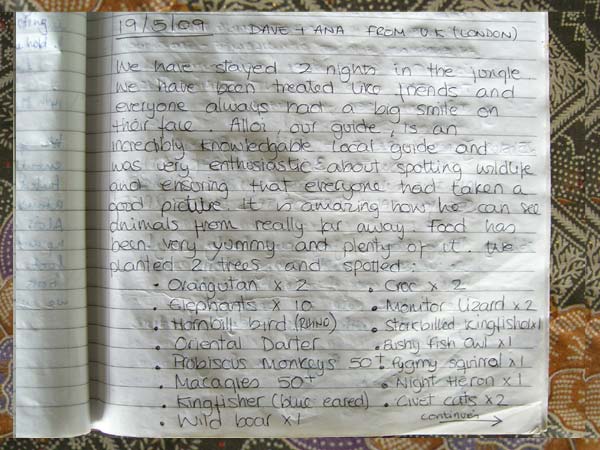 19/5/09 DAVE + ANA FROM U.K (LONDON)
We have stayed 2 nights in the jungle
We have been treated like friends and
everyone always had a big smile on
their face. Alloi, our guide, is an
incredibly knowledgable local guide and
was very enthusiastic about spotting wildlife
and ensuring that everyone had taken a
good picture. It is amazing how he can see
animals from really far away. Food has
been very yummy and plenty of it. We
planted 2 trees and spotted:
• Orangutan x 2 • Croc x 2
Elephants x 10 • Monitor lizard x 2
• Hornbill bird (RHINO) • Storkbilled kingfisher x1
• Oriental Darter • Bushy fish owl x1
• Probiscus Monkeys 50+ • Pygmy squirrel x1
• Macaques 50+ • Night Heron x 1
• Kingfisher (blue eared) • Civet cats x 2
• Wild boar x1 continues →